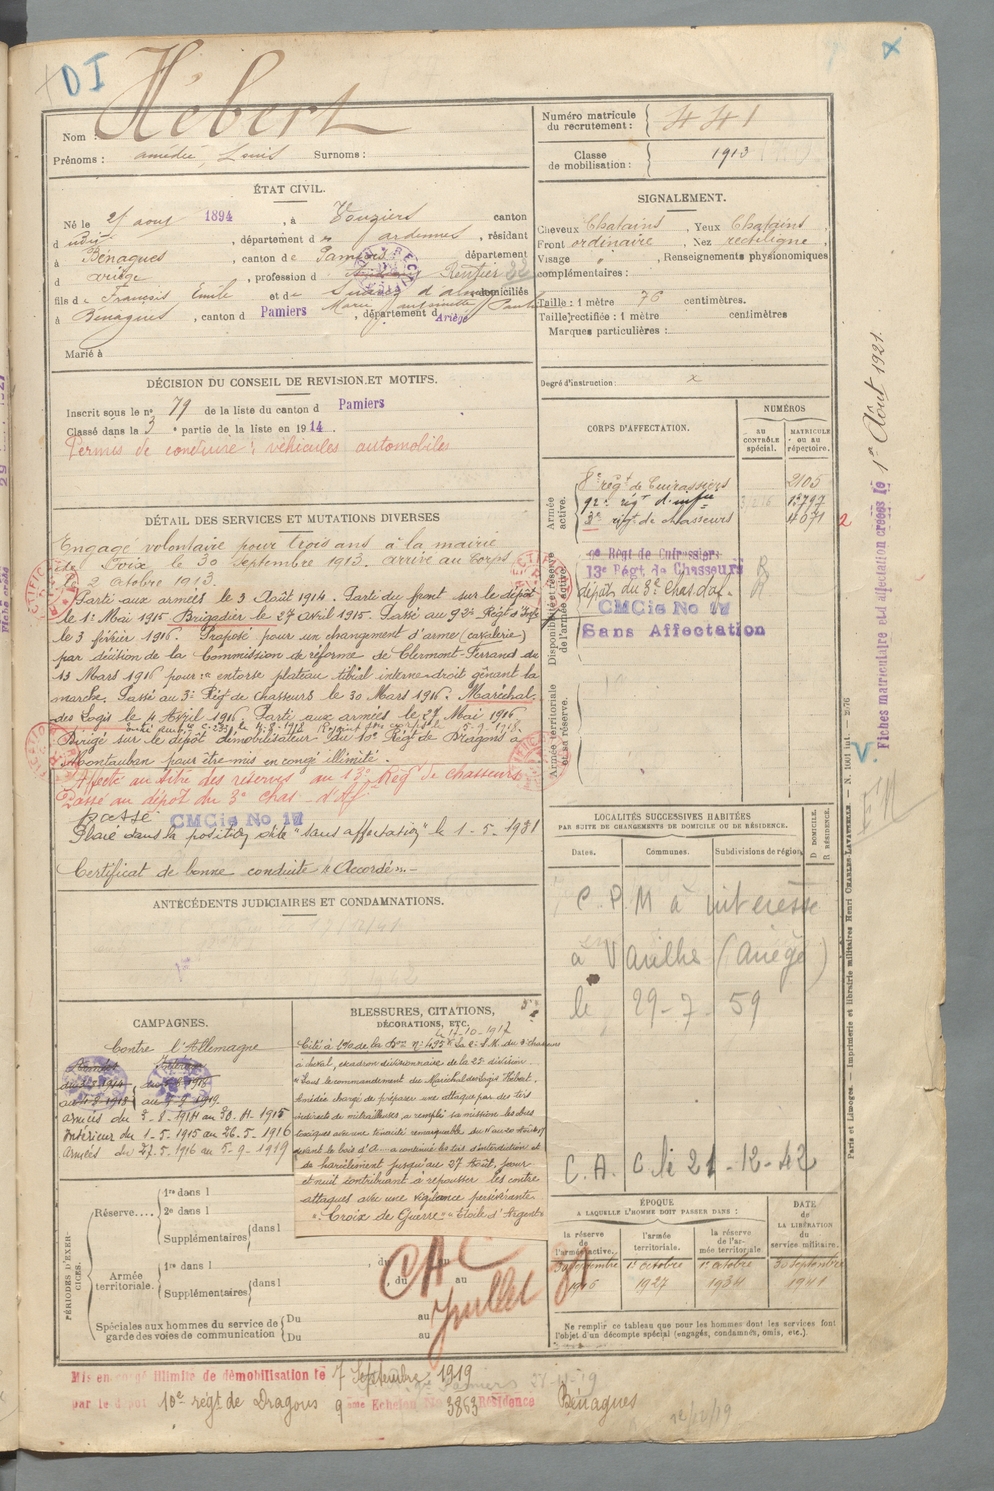 D I
Hébert
Nom :
Prénoms : amédée, Louis Surnoms :
Numéro matricule du recrutement : 441
Classe de mobilisation : 1913
ÉTAT CIVIL.
Né le 25 aout 1894, à Vouziers canton
d udit, département des ardennes, résidant
à Bénagues, canton de Pamiers département
d ariège, profession d Rentier 22
fils de François Emile et de domiciliés
Marie antoinette
à Benagues, canton d Pamiers, département d Ariège
Marié à
SIGNALEMENT.
Cheveux Chatains, Yeux Chatains
Front ordinaire, Nez rectiligne,
Visage " , Renseignements physionomiques
complémentaires :
Taille : 1 mètre 76 centimètres.
Taille rectifiée : 1 mètre centimètres
Marques particulières :
Degré d'instruction : x
DÉCISION DU CONSEIL DE REVISION ET MOTIFS.
Inscrit sous le n° 79 de la liste du canton d Pamiers
Classé dans la 3e partie de la liste en 1914.
Permis de conduire : véhicules automobiles
DÉTAIL DES SERVICES ET MUTATIONS DIVERSES
Engagé volontaire pour trois ans à la mairie
de Foix le 30 Septembre 1913. arrivé au Corps
le 2 Octobre 1913.
Parti aux armées le 3 Août 1914. Parti du front sur le dépôt
le 1er Mai 1915 Brigadier le 27 Avril 1915. Passé au 92e Régt d'Infie
le 3 février 1916. Proposé pour un changement d'arme (cavalerie)
par décision de la Commission de réforme de Clermont-Ferrand du
13 Mars 1916 pour : entorse plateau tibial interne droit gênant la
marche. Passé au 3e Régt de Chasseurs le 30 Mars 1916. Maréchal
des Logis le 4 Avril 1916. Parti aux armées le 27 Mai 1916
Dirigé sur le dépôt démobilisateur du 10e Régt de Dragons à
Montauban pour être mis en congé illimité.
Affecté au titre des réserves au 13e Régt de chasseurs
Passé au dépôt du 3e Chas. d'Af.
passé CMCie No 17
Placé dans la position dite "sans affectation" le 1-5-1931
Certificat de bonne conduite "Accordé".-
CORPS D'AFFECTATION.
NUMÉROS
AU CONTRÔLE SPÉCIAL.
MATRICULE OU AU RÉPERTOIRE.
Armée active.
8e régt de Cuirassiers 2105
92e régt d'infie 13797
3e régt de chasseurs 4071
2
Disponibilité et réserve de l'armée active.
Régt de Cuirassiers
13e Régt de Chasseurs R
dépôt du 3e Chas d'af. R
CMCie No 17
Sans Affectation
Armée territoriale et sa réserve.
ANTÉCÉDENTS JUDICIAIRES ET CONDAMNATIONS.
LOCALITÉS SUCCESSIVES HABITÉES
PAR SUITE DE CHANGEMENTS DE DOMICILE OU DE RÉSIDENCE.
Dates. Communes. Subdivisions de région.
D DOMICILE. R RÉSIDENCE.
C.P.M à intéressé
à Varilhes (Ariège)
le 29-7-59
C.A. C le 21-12-42
CAMPAGNES.
Contre l'Allemagne
armées du 3-8-1914 au 30.4.1915
Intérieur du 1-5-1915 au 26-5-1916
Armées du 27-5-1916 au 5-9-1919
BLESSURES, CITATIONS,
DÉCORATIONS, ETC.
le 17-10-1917
Cité à l'O/ de la Don n° 495 Le S.M. du 3e chasseurs
à cheval, escadron divisionnaire de la 25e division.
"Sous le commandement du Maréchal des Logis Hébert,
Amédée chargé de préparer une attaque par des tirs
indirects de mitrailleuses, a rempli sa mission
toxiques avec une tenacité remarquable du 11 au 20 Août 17
devant le bois d'A... a continué les tirs d'interdiction et
de harcèlement jusqu'au 27 Août, jour
et nuit contribuant à repousser les contre
attaques avec une vigilance persévérante.
". Croix de Guerre" "Etoile d'Argent"
PÉRIODES D'EXERCICES.
Réserve....
1re dans l
2e dans l
Supplémentaires dans l
Armée territoriale.
1re dans l
Supplémentaires dans l
, du au
, du au
Spéciales aux hommes du service de garde des voies de communication
Du au
Du au
CAC
Juillet 31
ÉPOQUE
A LAQUELLE L'HOMME DOIT PASSER DANS :
la réserve de l'armée active.
l'armée territoriale.
la réserve de l'armée territoriale
DATE DE LA LIBÉRATION du service militaire.
30 septembre 1916
1er octobre 1927
1er octobre 1934
30 septembre 1941
Ne remplir ce tableau que pour les hommes dont les services font
l'objet d'un décompte spécial (engagés, condamnés, omis, etc.).
Mis en congé illimité de démobilisation le 7 Septembre 1919
par le dépôt 10e régt de Dragons 9ème Echelon No 3863 Résidence Bénagues
12/12/19
Fiches matriculaire et affectation creées le 1er Août 1921.
V.
Paris et Limoges. — Imprimerie et librairie militaires Henri CHARLES-LAVAUZELLE.